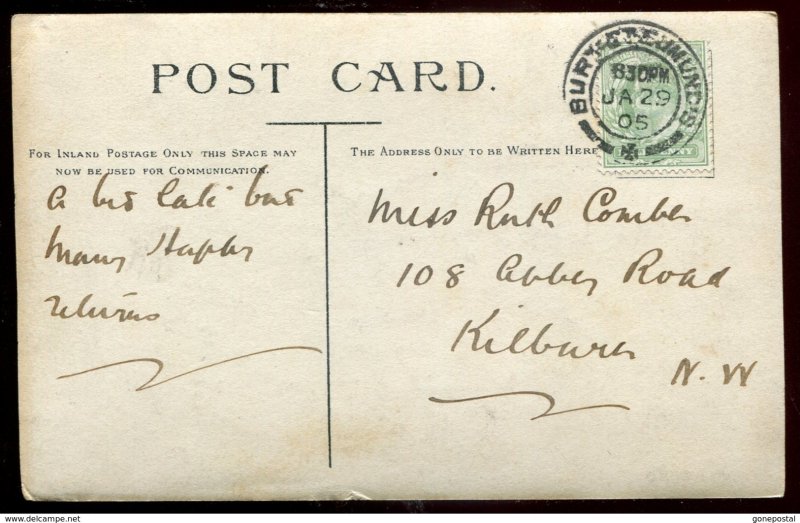 POST CARD.
FOR INLAND POSTAGE ONLY THIS SPACE MAY
NOW BE USED FOR COMMUNICATION.
THE ADDRESS ONLY TO BE WRITTEN HERE
BURY ST EDMUND'S
830PM
JA 29
05
A bit late but
Many Happy
returns
Miss Ruth Comber
108 Abbey Road
Kilburn
N. W
gonepostal